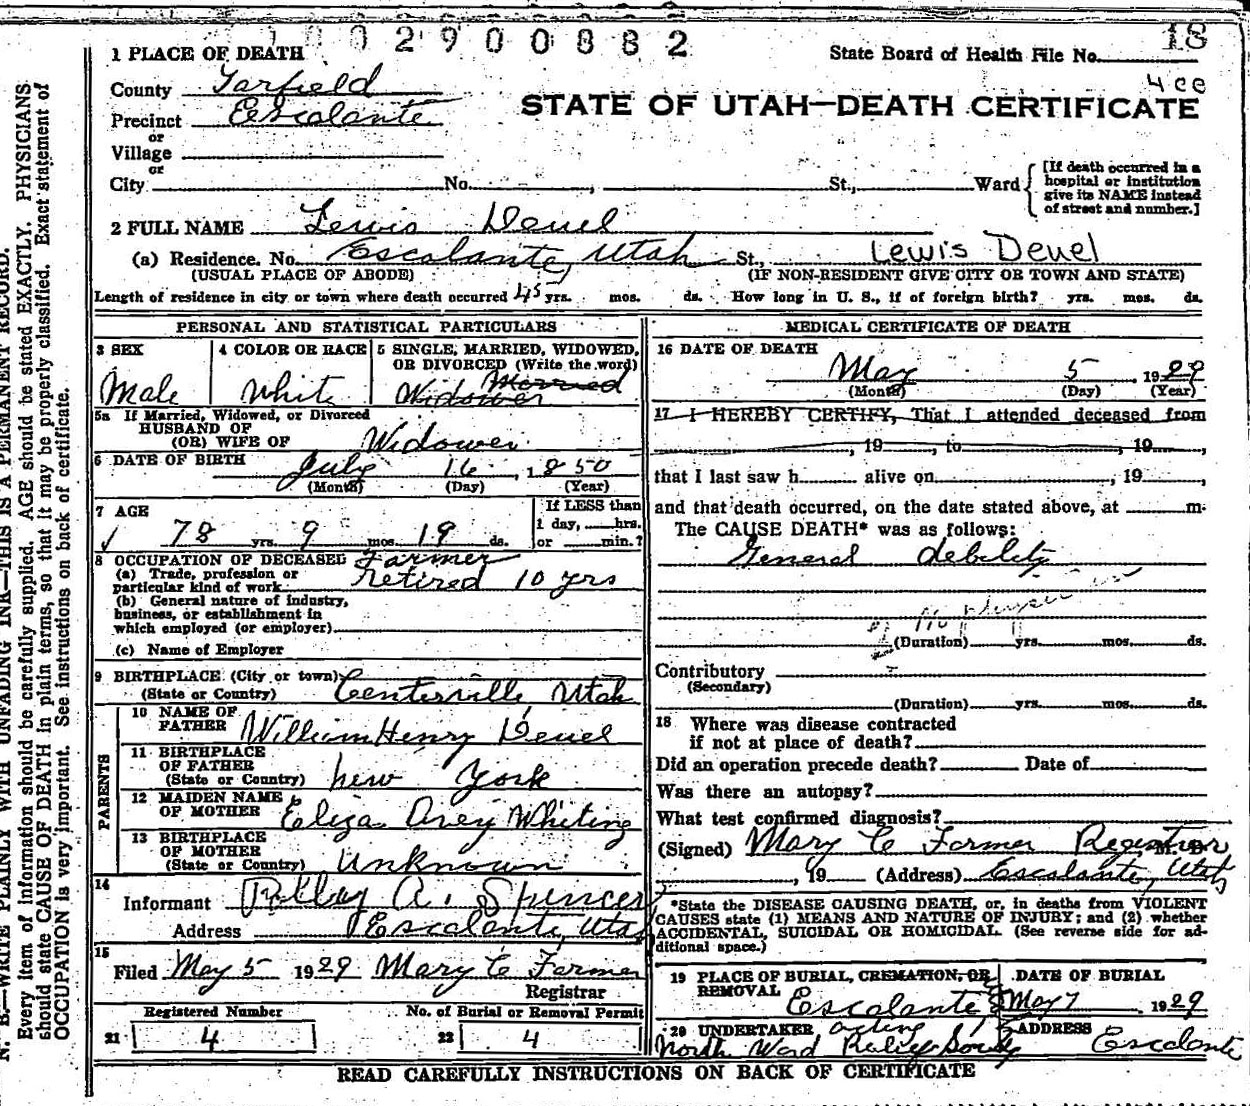 2900882
18
1 PLACE OF DEATH
State Board of Health File No.
County Garfield
4 cc
STATE OF UTAH—DEATH CERTIFICATE
Precinct Escalante
or
Village
or
City No. , St., Ward
[If death occurred in a
hospital or institution
give its NAME instead
of street and number.]
2 FULL NAME Lewis Deuel
(a) Residence. No. Escalante, Utah St., Lewis Deuel
(USUAL PLACE OF ABODE) (IF NON-RESIDENT GIVE CITY OR TOWN AND STATE)
Length of residence in city or town where death occurred 45 yrs. mos. ds. How long in U. S., if of foreign birth? yrs. mos. ds.
PERSONAL AND STATISTICAL PARTICULARS
3 SEX
Male
4 COLOR OR RACE
White
5 SINGLE, MARRIED, WIDOWED,
OR DIVORCED (Write the word)
Married
Widower
5a If Married, Widowed, or Divorced
HUSBAND OF
(OR) WIFE OF Widower
6 DATE OF BIRTH July 16, 1850
(Month) (Day) (Year)
7 AGE
78 yrs. 9 mos. 19 ds.
If LESS than
1 day, hrs.
or min.?
8 OCCUPATION OF DECEASED Farmer
(a) Trade, profession or
particular kind of work retired 10 yrs
(b) General nature of industry,
business, or establishment in
which employed (or employer)
(c) Name of Employer
9 BIRTHPLACE (City or town)
(State or Country) Centerville, Utah
PARENTS
10 NAME OF
FATHER William Henry Deuel
11 BIRTHPLACE
OF FATHER
(State or Country) New York
12 MAIDEN NAME
OF MOTHER Eliza Avey Whiting
13 BIRTHPLACE
OF MOTHER
(State or Country) Unknown
14
Informant Polley A. Spencer
Address Escalante, Utah
15
Filed May 5 1929 Mary C Farmer
Registrar
Registered Number
21 4
No. of Burial or Removal Permit
22 4
MEDICAL CERTIFICATE OF DEATH
16 DATE OF DEATH
May 5, 1929
(Month) (Day) (Year)
17 I HEREBY CERTIFY, That I attended deceased from
, 19 , to , 19 ,
that I last saw h alive on , 19 ,
and that death occurred, on the date stated above, at m.
The CAUSE DEATH* was as follows:
General debility
No physician
(Duration) yrs. mos. ds.
Contributory
(Secondary)
(Duration) yrs. mos. ds.
18 Where was disease contracted
if not at place of death?
Did an operation precede death? Date of
Was there an autopsy?
What test confirmed diagnosis?
(Signed) Mary C Farmer Registrar M. D.
, 19 (Address) Escalante, Utah
*State the DISEASE CAUSING DEATH, or, in deaths from VIOLENT
CAUSES state (1) MEANS AND NATURE OF INJURY; and (2) whether
ACCIDENTAL, SUICIDAL OR HOMICIDAL. (See reverse side for ad-
ditional space.)
19 PLACE OF BURIAL, CREMATION, OR
REMOVAL
Escalante
DATE OF BURIAL
May 7, 1929
20 UNDERTAKER acting
North Ward Relief Society
ADDRESS
Escalante
READ CAREFULLY INSTRUCTIONS ON BACK OF CERTIFICATE
N. B.—WRITE PLAINLY WITH UNFADING INK—THIS IS A PERMANENT RECORD.
Every item of information should be carefully supplied. AGE should be stated EXACTLY. PHYSICIANS
should state CAUSE OF DEATH in plain terms, so that it may be properly classified. Exact statement of
OCCUPATION is very important. See instructions on back of certificate.